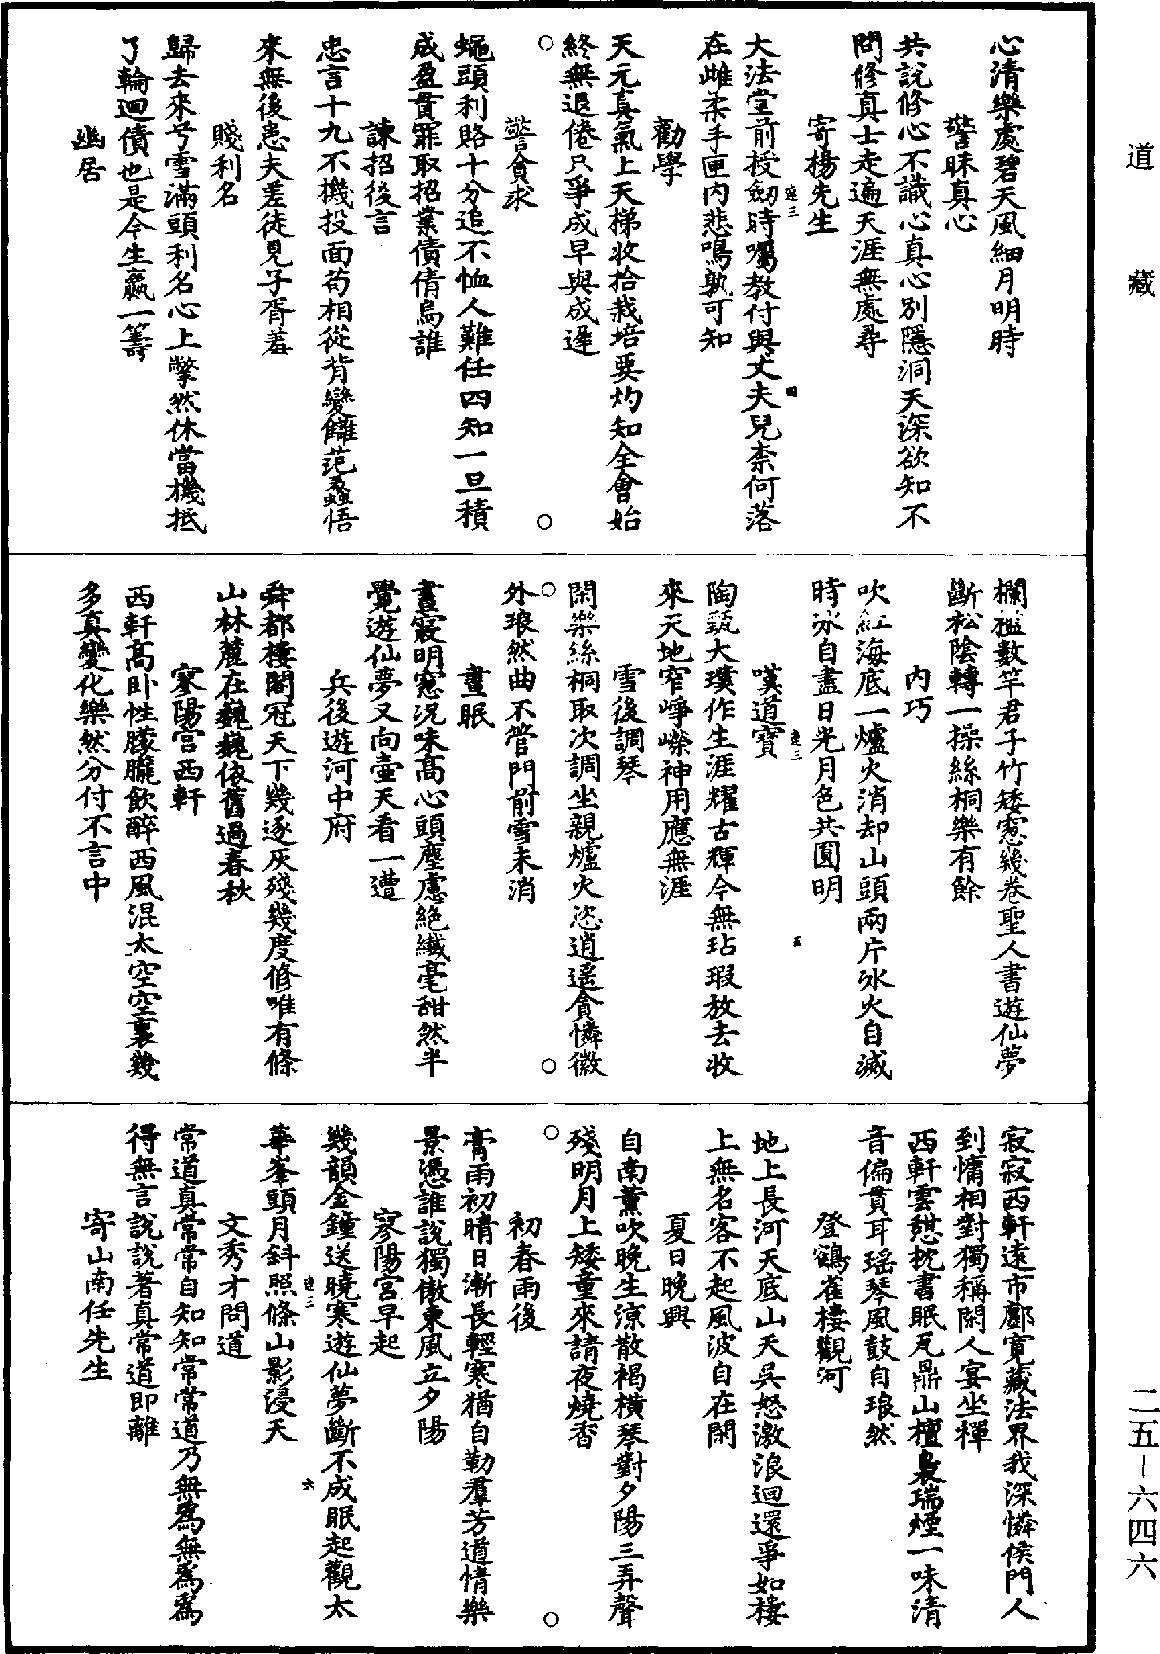 道藏
心清樂處碧天風細月明時
警昧真心
共說修心不識心真心別隱洞天深欲知不
問修真士走遍天涯無處尋
寄楊先生
大法堂前授劒時囑教付與丈夫兒柰何落
在雌柔手匣内悲鳴孰可知
勸學
天元真氣上天梯收拾栽培要灼知全會始
終無退倦只爭成早與成遲
警貪求
蠅頭利賂十分追不恤人難任四知一旦積
成盈貫罪取招業債倩烏誰
諫招後言
忠言十九不機投面苟相從背變讎范蠡悟
來無後患夫差徒見子胥羞
賤利名
歸去來兮雪滿頭利名心上瞥然休當機抵
了輪迴債也是今生贏一籌
幽居
欄檻數竿君子竹矮窻幾卷聖人書遊仙夢
斷松陰轉一操絲桐樂有餘
内巧
吹紅海底一爐火消却山頭兩片冰火自滅
時冰自盡日光月色共圓明
嘆道寶
陶甄大璞作生涯耀古輝今無玷瑕放去收
來天地窄崢嶸神用應無涯
雪後調琴
閑樂絲桐取次調坐親爐火恣逍遥貪憐徽
外琅然曲不管門前雪未消
晝眠
晝寢明窻況味高心頭塵慮絕纖毫甜然半
覺遊仙夢又向壺天看一遭
兵後遊河中府
舜都樓閣冠天下幾逐灰殘幾度修唯有條
山林麓在巍巍依舊過春秋
寥陽宫西軒
西軒高卧性朦朧飲醉西風混太空空裏幾
多真變化樂然分付不言中
寂寂西軒遠市鄽寬藏法界我深憐侯門人
到慵相對獨稱閑人宴坐禪
西軒雲憩枕書眠瓦鼎山檀裊瑞煙一味清
音偏貫耳瑶琴風鼓自琅然
登鶴雀樓觀河
地上長河天底山天吳怒激浪迴還爭如樓
上無名客不起風波自在閑
夏日晚興
自南薰吹晚生涼散褐橫琴對夕陽三弄聲
殘明月上矮童來請夜燒香
初春雨後
膏雨初晴日漸長輕寒猶自勒羣芳道情樂
景憑誰說獨傲東風立夕陽
寥陽宫早起
幾韻金鐘送曉寒遊仙夢斷不成眠起觀太
華峯頭月斜照條山影浸天
文秀才問道
常道真常常自知知常常道乃無爲無爲爲
得無言說說著真常道即離
寄山南任先生
二五—六四六